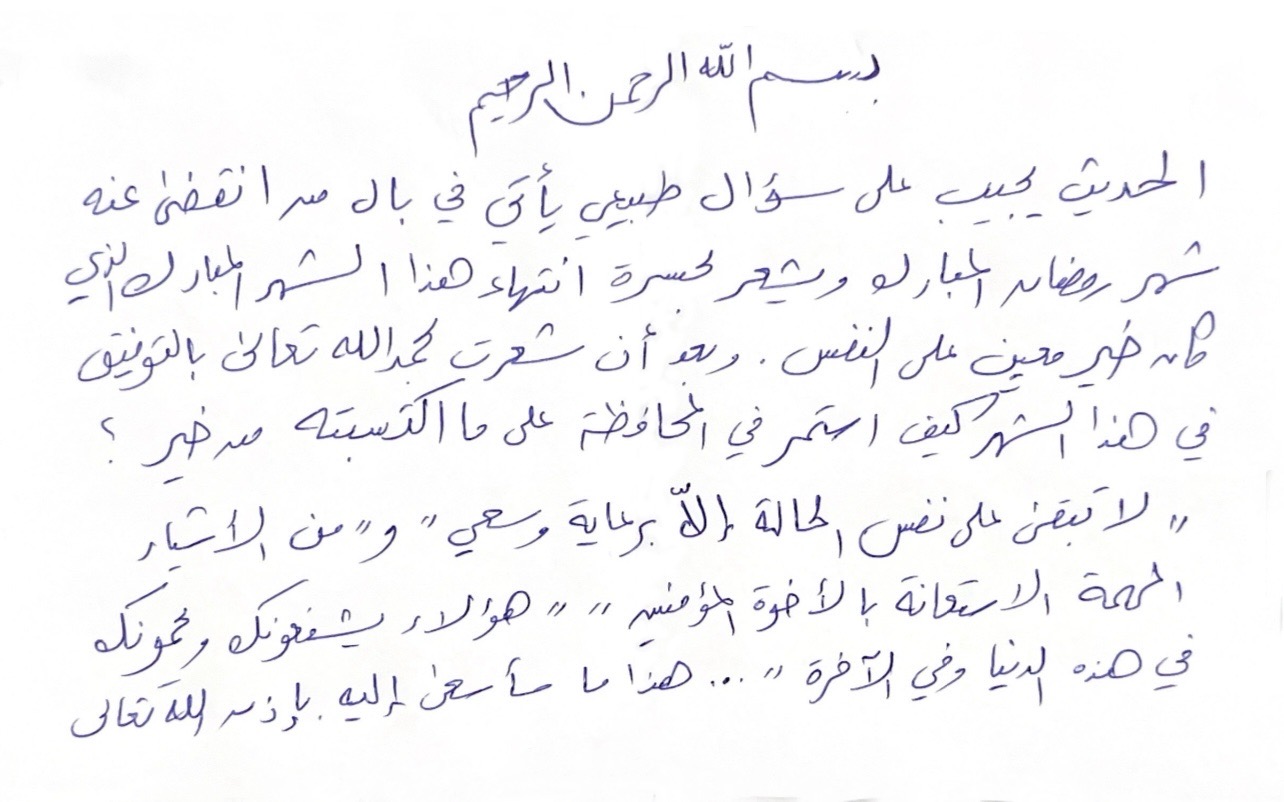 بسم الله الرحمن الرحيم
الحديث يجيب على سؤال طبيعي يأتي في بال من انقضىٰ عنه
شهر رمضان المبارك ويشعر بحسرة انتهاء هذا الشهر المبارك الذي
كان خير معين على النفس . وبعد أن شعرت بحمد الله تعالىٰ بالتوفيق
في هذا الشهر كيف استمر في المحافظة على ما اكتسبته من خير ؟
" لا تبقىٰ على نفس الحالة إلّا برعاية وسعي " و " من الأشياء
المهمة الاستعانة بالأخوة المؤمنين " " هؤلاء يشفعونك ويحمونك
في هذه الدنيا وفي الآخرة " ... هذا ما سأسعىٰ إليه بإذن الله تعالى